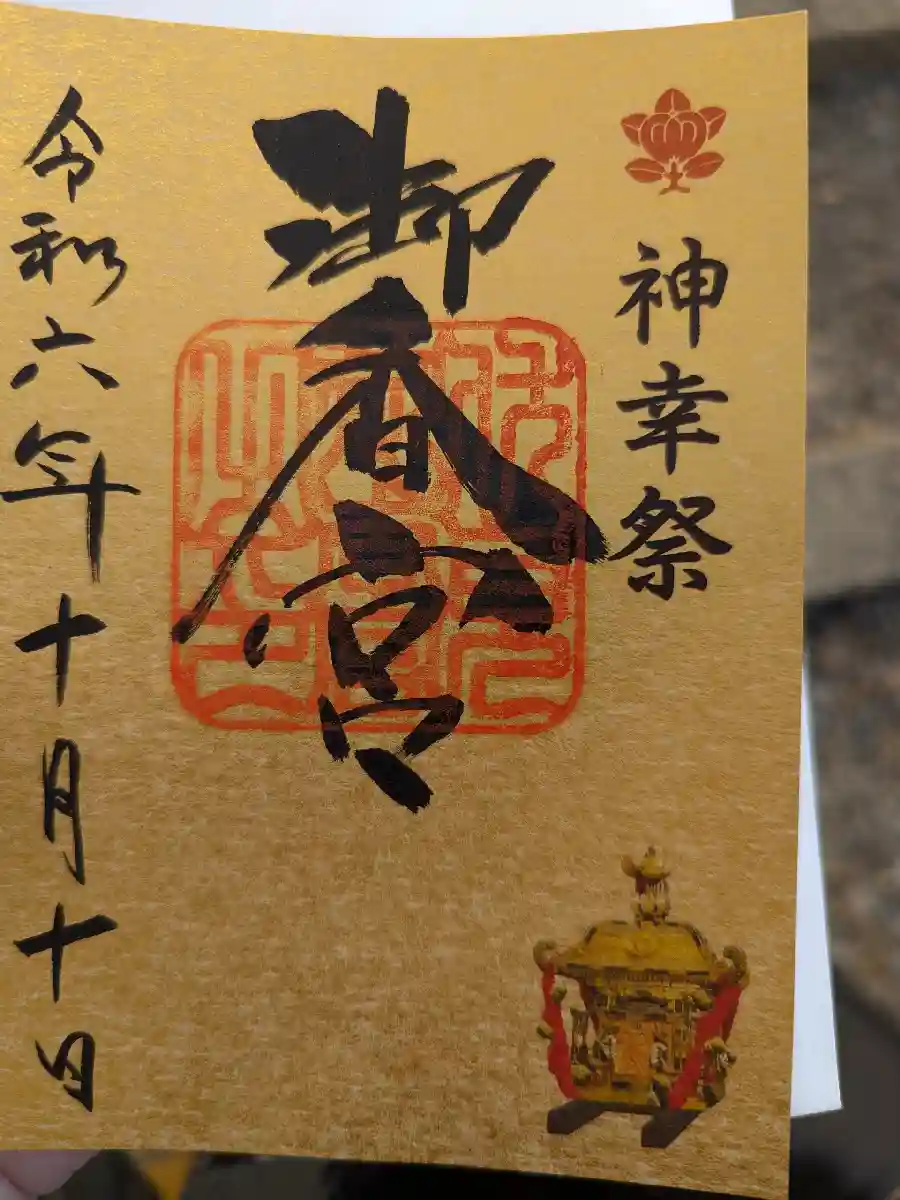 神幸祭
御香宮
令和六年十月十日